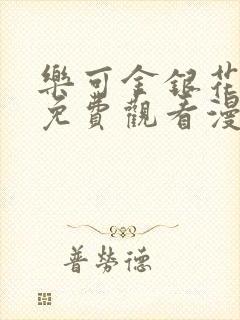 樂可金銀花
免費觀看漫
普勞德